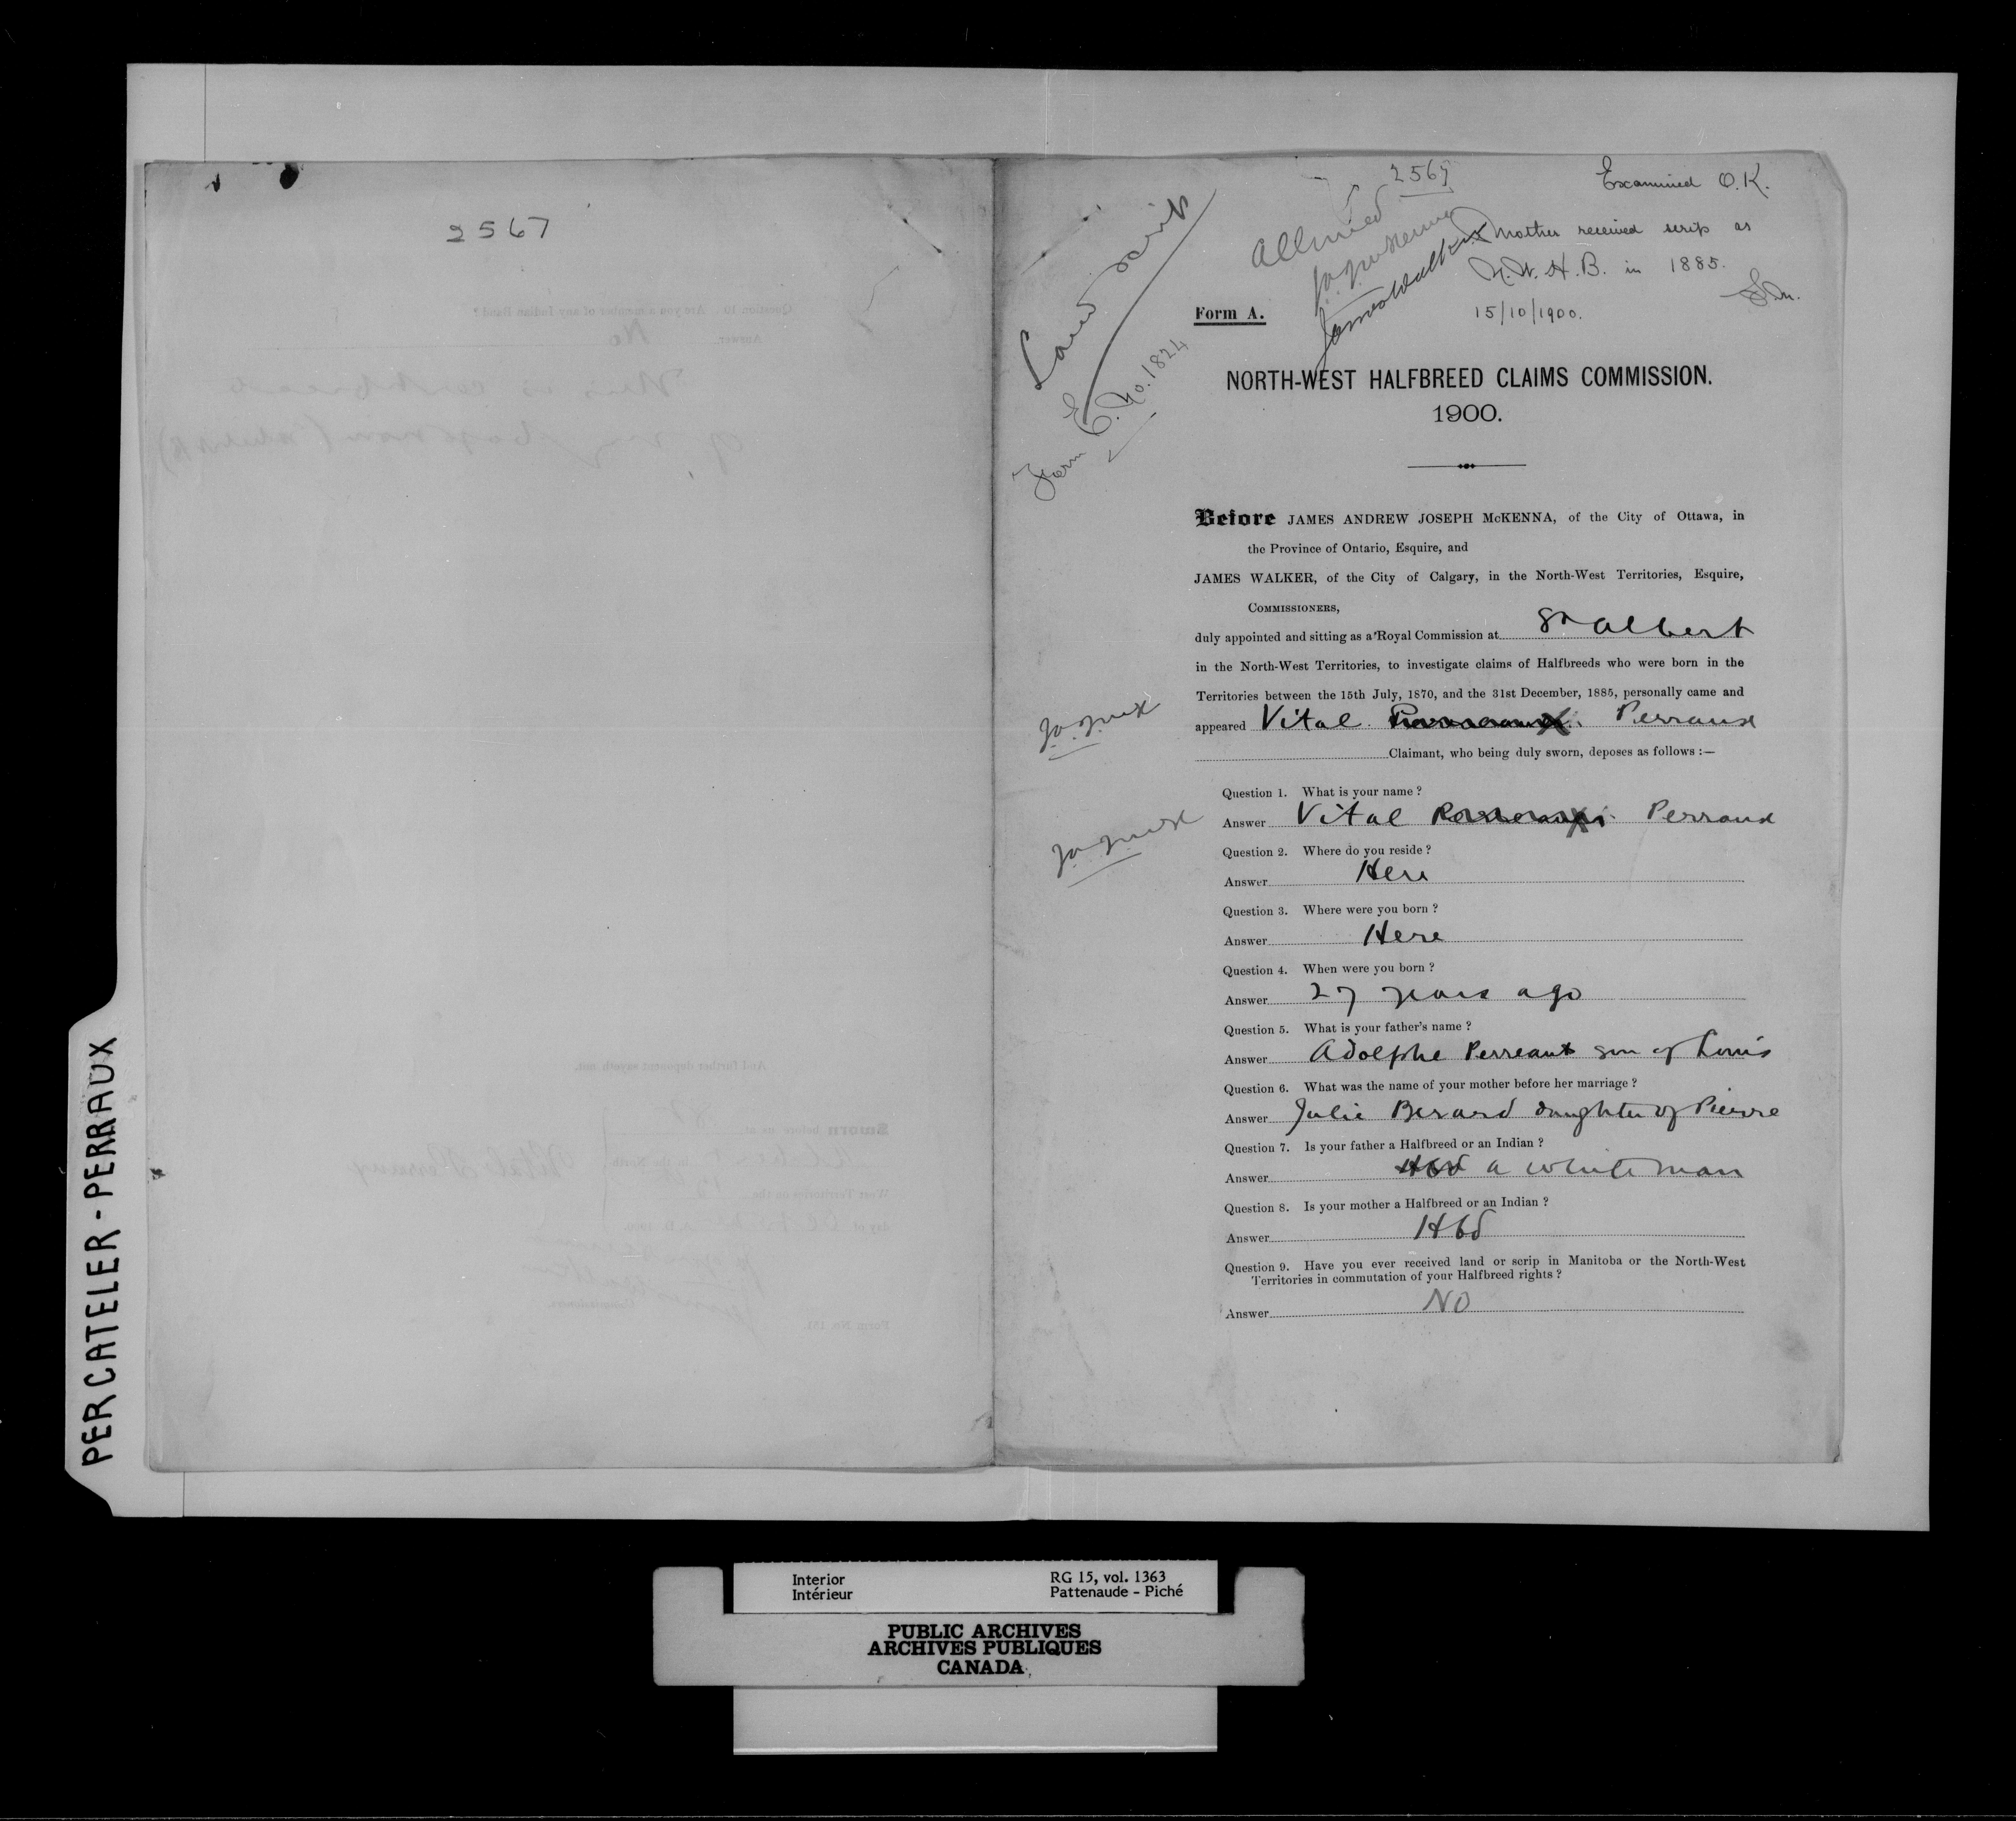 2567
PERCATELER - PERRAUX
2567
Examined O.K.
Land Scrip
Allowed
James Walker
Mother received scrip as
N.W.H.B. in 1885.
15/10/1900.
Form A.
Form E. No. 1824
NORTH-WEST HALFBREED CLAIMS COMMISSION.
1900.
Before JAMES ANDREW JOSEPH McKENNA, of the City of Ottawa, in
the Province of Ontario, Esquire, and
JAMES WALKER, of the City of Calgary, in the North-West Territories, Esquire,
COMMISSIONERS,
duly appointed and sitting as a Royal Commission at St Albert
in the North-West Territories, to investigate claims of Halfbreeds who were born in the
Territories between the 15th July, 1870, and the 31st December, 1885, personally came and
appeared Vital Perraux
Claimant, who being duly sworn, deposes as follows :—
Question 1. What is your name ?
Answer Vital Perraux
Question 2. Where do you reside ?
Answer Here
Question 3. Where were you born ?
Answer Here
Question 4. When were you born ?
Answer 27 years ago
Question 5. What is your father's name ?
Answer Adolphe Perreault son of Louis
Question 6. What was the name of your mother before her marriage ?
Answer Julie Berard daughter of Pierre
Question 7. Is your father a Halfbreed or an Indian ?
Answer Hbd a white man
Question 8. Is your mother a Halfbreed or an Indian ?
Answer Hbd
Question 9. Have you ever received land or scrip in Manitoba or the North-West
Territories in commutation of your Halfbreed rights ?
Answer NO
Interior
Intérieur
RG 15, vol. 1363
Pattenaude - Piché
PUBLIC ARCHIVES
ARCHIVES PUBLIQUES
CANADA